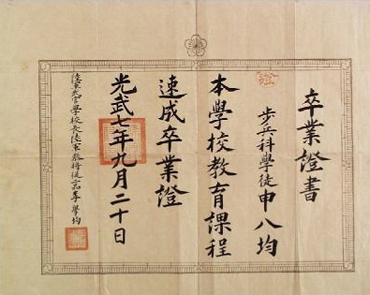 卒業證書
步兵科學徒申八均
本學校教育課程
速成卒業證
光武七年九月二十日
陸軍武官學校長陸軍叅將從二品李學均
證